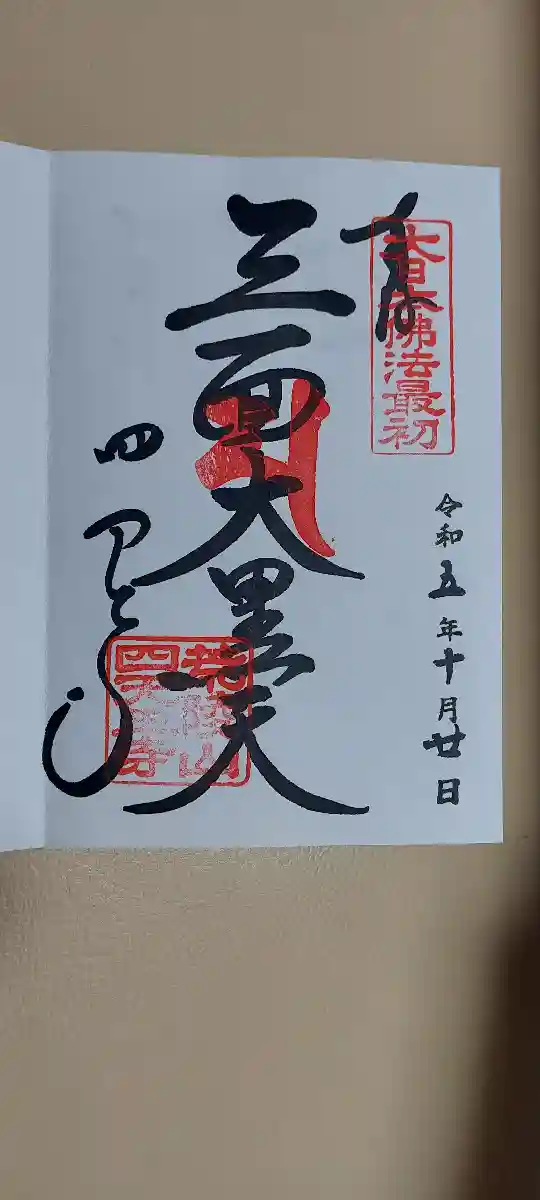 奉
大日本佛法最初
令和五年十月廿日
三面大黒天
四天王寺
荒陵山
四天王寺